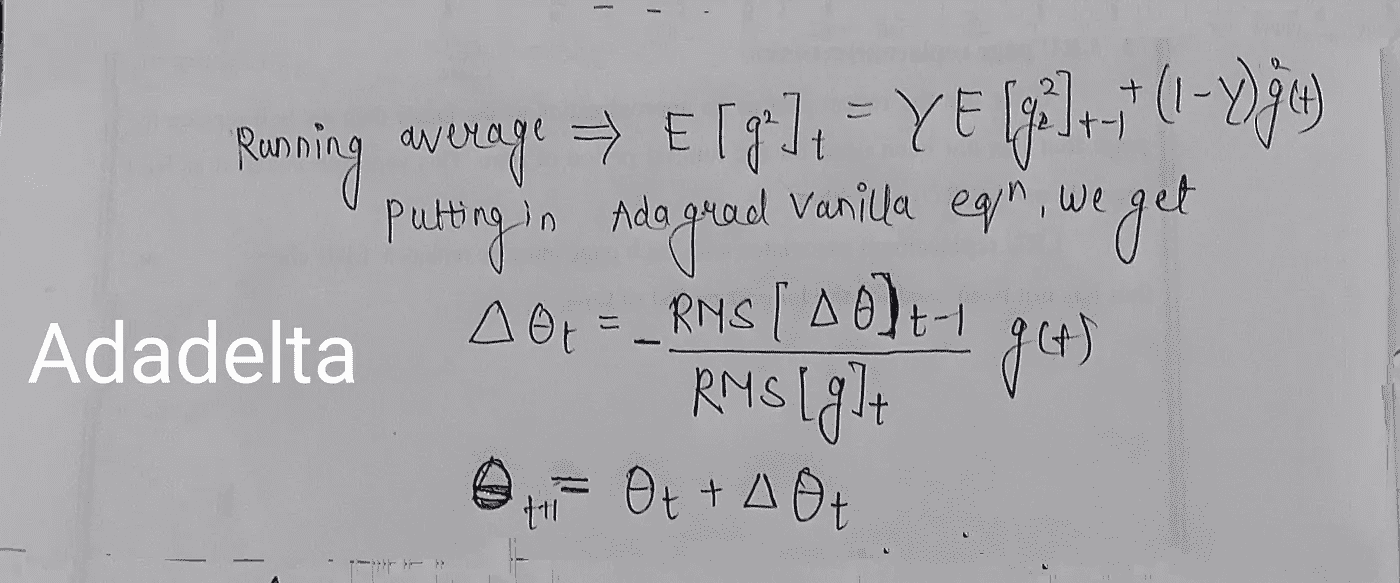 Running average ⇒ E[g²]t = γE[g₂²]t-1 + (1-γ)g²(t)
putting in Adagrad vanilla eqⁿ, we get
Δθt = - RMS[Δθ]t-1 / RMS[g]t g(t)
Adadelta
θt+1 = θt + Δθt